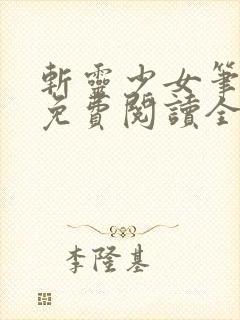 斬靈少女筆
免費閱讀全
李隆基